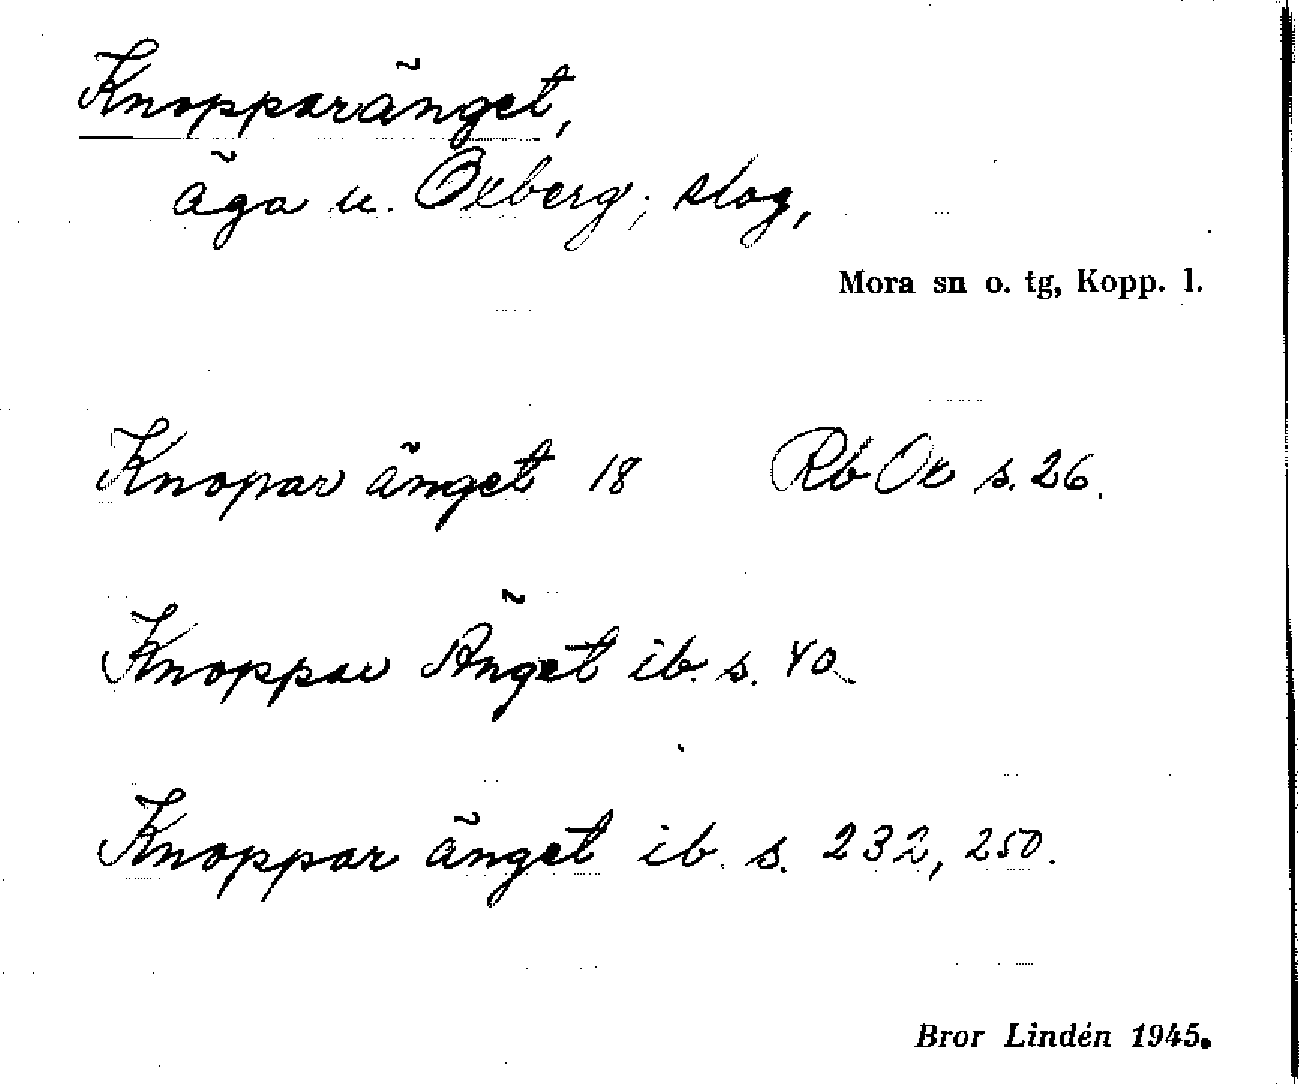 Knopparänget,
äga u. Oxberg; skog,
Mora sn o. tg, Kopp. l.
Knopar änget 18 Rb Ox s. 26.
Knoppar Änget ib. s. 40
Knoppar änget ib. s. 232, 250.
Bror Lindén 1945.